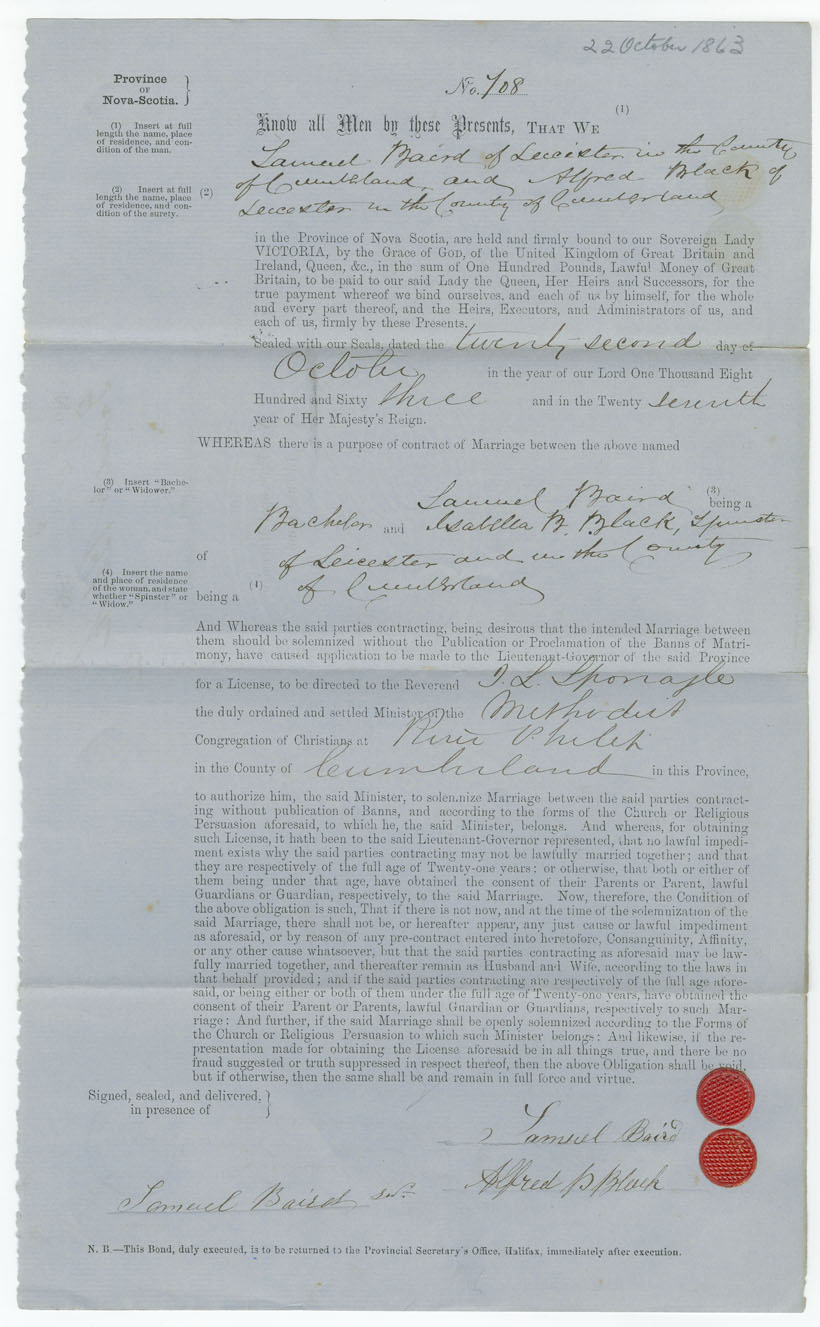 22 October 1863
Province
OF
Nova-Scotia.
No. 708
(1)
Know all Men by these Presents, THAT WE
(1) Insert at full
length the name, place
of residence, and con-
dition of the man.
Samuel Baird of Leicester in the County
(2) Insert at full
length the name, place
of residence, and con-
dition of the surety.
(2)
of Cumberland and Alfred Black of
Leicester in the County of Cumberland
in the Province of Nova Scotia, are held and firmly bound to our Sovereign Lady
VICTORIA, by the Grace of GOD, of the United Kingdom of Great Britain and
Ireland, Queen, &c., in the sum of One Hundred Pounds, Lawful Money of Great
Britain, to be paid to our said Lady the Queen, Her Heirs and Successors, for the
true payment whereof we bind ourselves, and each of us by himself, for the whole
and every part thereof, and the Heirs, Executors, and Administrators of us, and
each of us, firmly by these Presents.
Sealed with our Seals, dated the twenty second day of
October in the year of our Lord One Thousand Eight
Hundred and Sixty three and in the Twenty seventh
year of Her Majesty's Reign.
WHEREAS there is a purpose of contract of Marriage between the above named
(3) Insert "Bache-
lor" or "Widower."
Samuel Baird (3) being a
Bachelor and Isabella B. Black, Spinster
of of Leicester and in the County
(4) Insert the name
and place of residence
of the woman, and state
whether "Spinster" or
"Widow."
being a (4) of Cumberland
And Whereas the said parties contracting, being desirous that the intended Marriage between
them should be solemnized without the Publication or Proclamation of the Banns of Matri-
mony, have caused application to be made to the Lieutenant-Governor of the said Province
for a License, to be directed to the Reverend J. L. Sponagle
the duly ordained and settled Minister of the Methodist
Congregation of Christians at River Philip
in the County of Cumberland in this Province,
to authorize him, the said Minister, to solemnize Marriage between the said parties contract-
ing without publication of Banns, and according to the forms of the Church or Religious
Persuasion aforesaid, to which he, the said Minister, belongs. And whereas, for obtaining
such License, it hath been to the said Lieutenant-Governor represented, that no lawful impedi-
ment exists why the said parties contracting may not be lawfully married together; and that
they are respectively of the full age of Twenty-one years; or otherwise, that both or either of
them being under that age, have obtained the consent of their Parents or Parent, lawful
Guardians or Guardian, respectively, to the said Marriage. Now, therefore, the Condition of
the above obligation is such, That if there is not now, and at the time of the solemnization of the
said Marriage, there shall not be, or hereafter appear, any just cause or lawful impediment
as aforesaid, or by reason of any pre-contract entered into heretofore, Consanguinity, Affinity,
or any other cause whatsoever, but that the said parties contracting as aforesaid may be law-
fully married together, and thereafter remain as Husband and Wife, according to the laws in
that behalf provided; and if the said parties contracting are respectively of the full age afore-
said, or being either or both of them under the full age of Twenty-one years, have obtained the
consent of their Parent or Parents, lawful Guardian or Guardians, respectively to such Mar-
riage: And further, if the said Marriage shall be openly solemnized according to the Forms of
the Church or Religious Persuasion to which such Minister belongs: And likewise, if the re-
presentation made for obtaining the License aforesaid be in all things true, and there be no
fraud suggested or truth suppressed in respect thereof, then the above Obligation shall be void,
but if otherwise, then the same shall be and remain in full force and virtue.
Signed, sealed, and delivered,
in presence of
Samuel Baird
Alfred B Black
Samuel Baird
N. B.—This Bond, duly executed, is to be returned to the Provincial Secretary's Office, Halifax, immediately after execution.